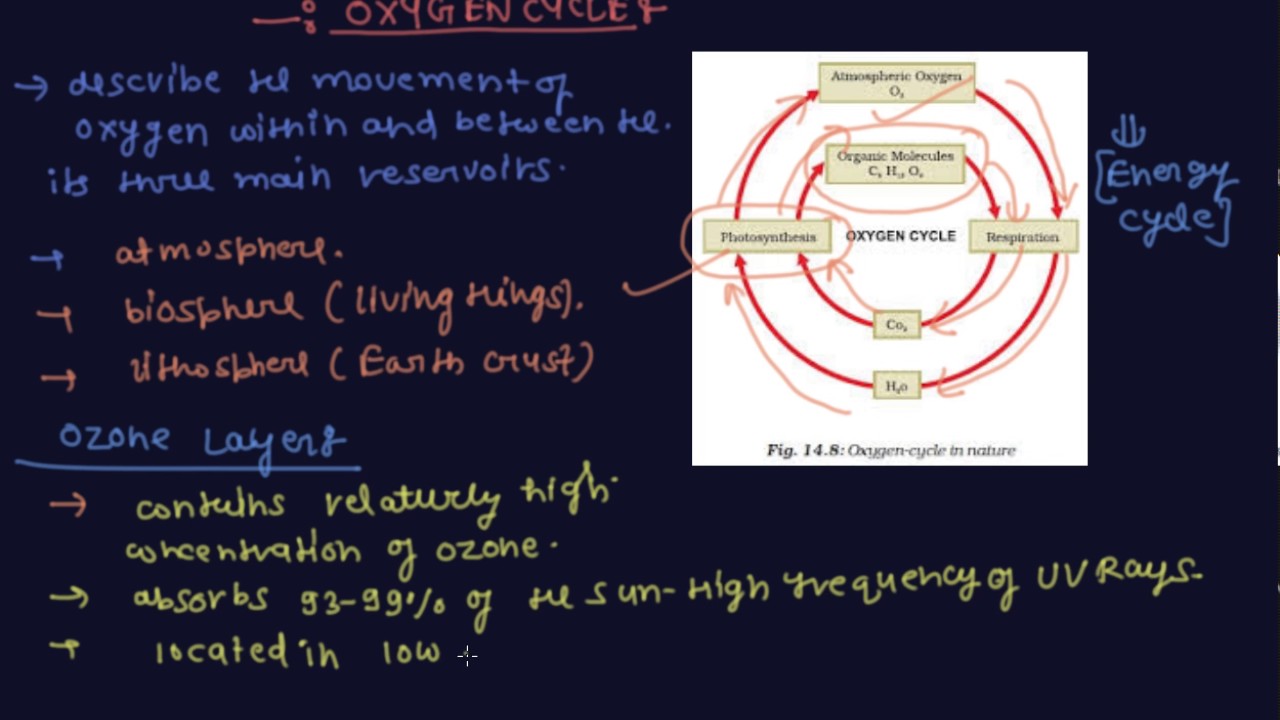 OXYGEN CYCLE
→ describe the movement of
oxygen within and between the.
its three main reservoirs.
→ atmosphere.
→ biosphere (living things).
→ lithosphere (Earth crust)
Ozone Layer
→ contains relatively high
concentration of ozone.
→ absorbs 93-99% of the sun-High frequency of UV Rays.
→ located in low
Atmospheric Oxygen
O₂
Organic Molecules
Photosynthesis
OXYGEN CYCLE
Respiration
Co₂
H₂o
Fig. 14.8: Oxygen-cycle in nature
⇓
[Energy
cycle]